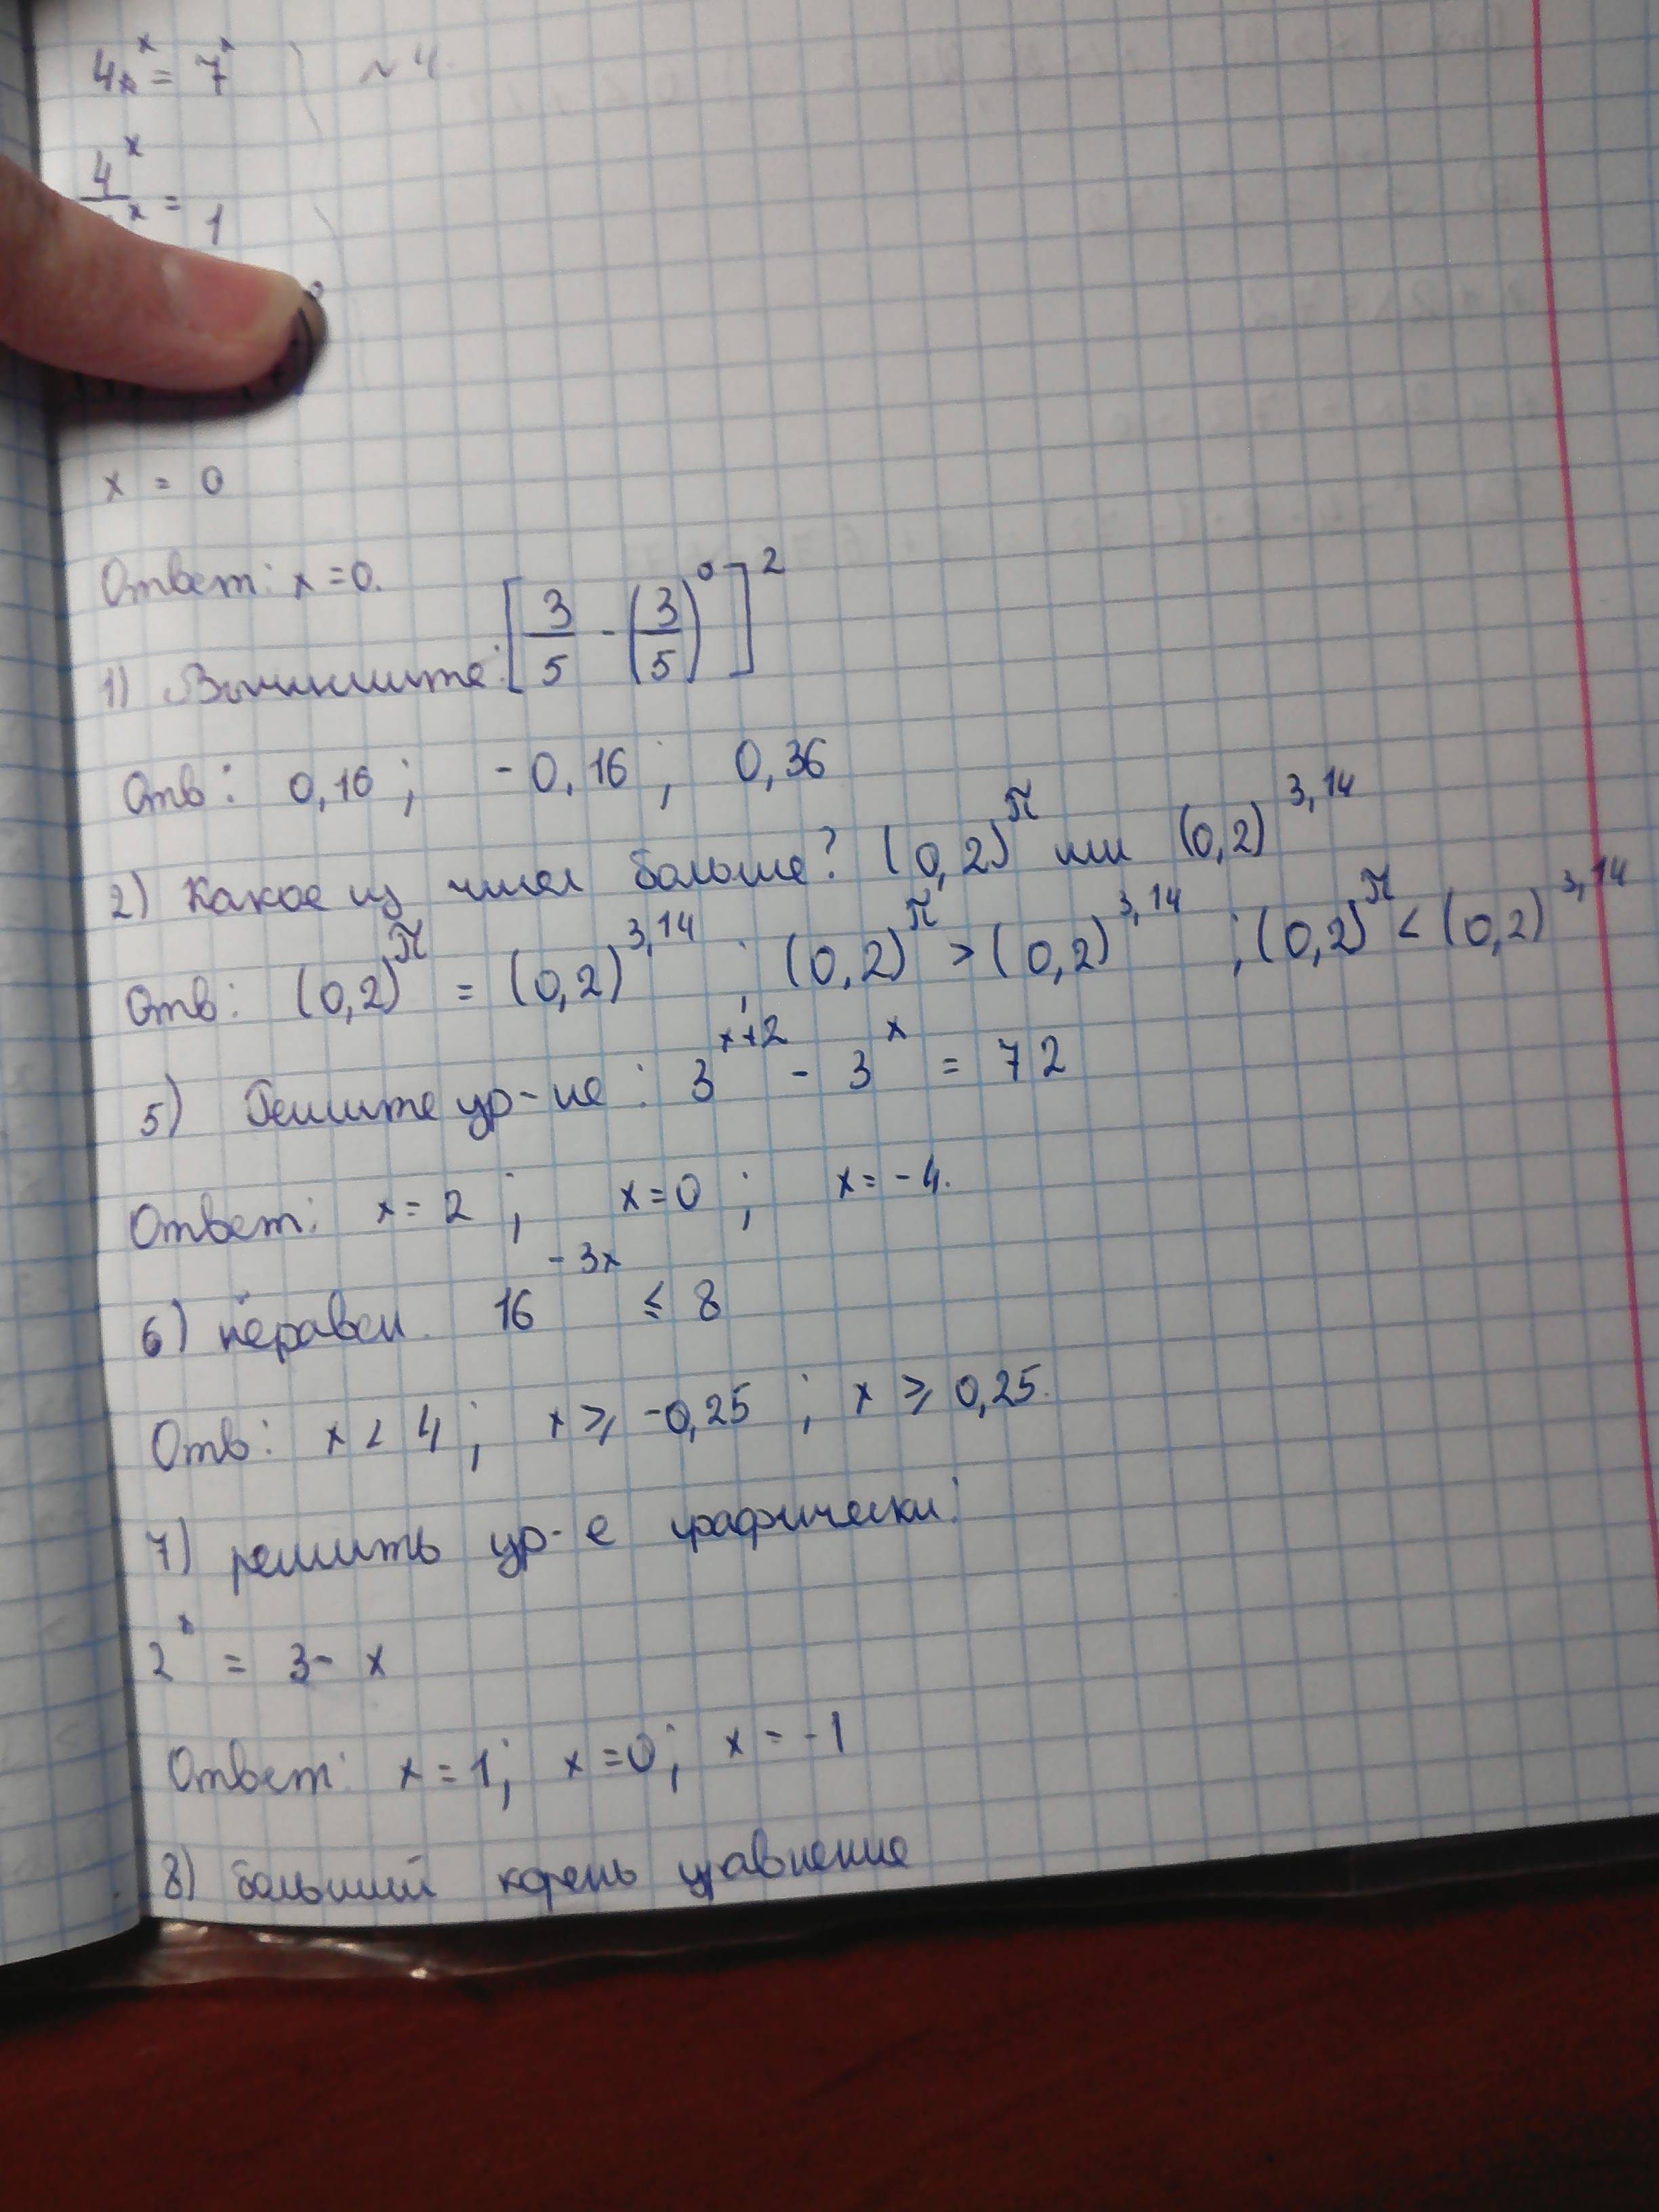 4x^x = 7^x № 4.
4^x/ ^x = 1
x = 0
Ответ: x = 0.
1) Вычислите: [3/5 - (3/5)^0]^2
Отв: 0,16; -0,16; 0,36
2) Какое из чисел больше? (0,2)^π или (0,2)^3,14
Отв: (0,2)^π = (0,2)^3,14; (0,2)^π > (0,2)^3,14; (0,2)^π < (0,2)^3,14
5) Решите ур-ие: 3^x+2 - 3^x = 72
Ответ: x = 2; x = 0; x = -4.
6) неравен. 16^-3x ≤ 8
Отв: x < 4; x ⩾ -0,25; x ⩾ 0,25.
7) решить ур-е графически:
2^x = 3 - x
Ответ: x = 1; x = 0; x = -1
8) больший корень уравнение